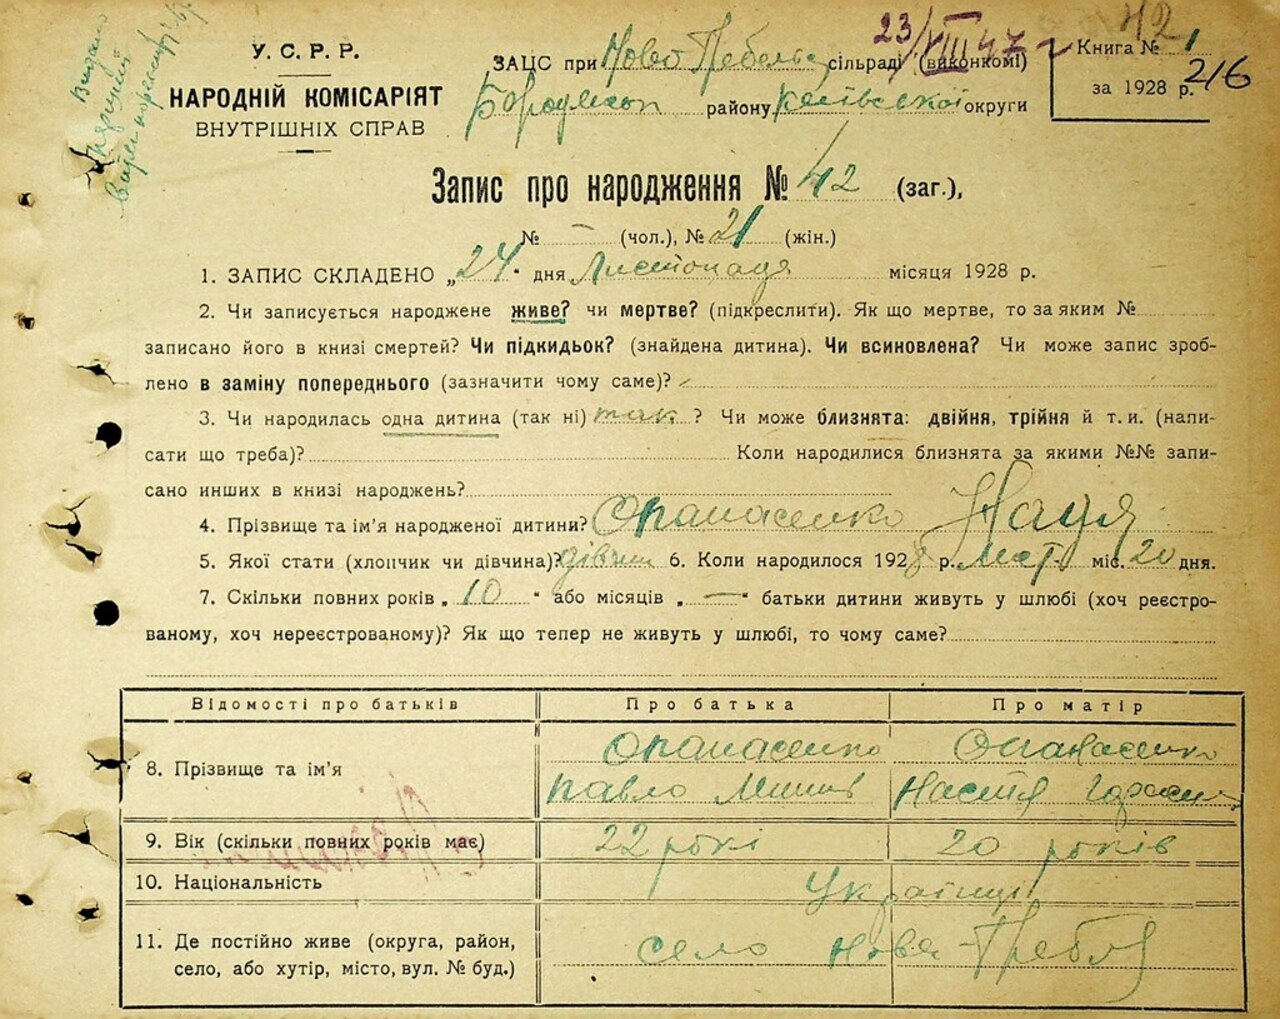 42
23/VIII 47
У.С.Р.Р.
НАРОДНІЙ КОМІСАРІЯТ
ВНУТРІШНІХ СПРАВ
ЗАЦС при Ново Гребельс сільраді (виконкомі)
Бородянск району Київської округи
Книга № 1
за 1928 р.
216
Запис про народження № 42 (заг.),
№ — (чол.), № 21 (жін.)
1. ЗАПИС СКЛАДЕНО „24" дня Листопада місяця 1928 р.
2. Чи записується народжене живе? чи мертве? (підкреслити). Як що мертве, то за яким №
записано його в книзі смертей? Чи підкидьок? (знайдена дитина). Чи всиновлена? Чи може запис зроб-
лено в заміну попереднього (зазначити чому саме)?
3. Чи народилась одна дитина (так ні) так ? Чи може близнята: двійня, трійня й т. и. (напи-
сати що треба)? Коли народилися близнята за якими №№ запи-
сано инших в книзі народжень?
4. Прізвище та ім'я народженої дитини? Опанасенко Надя
5. Якої стати (хлопчик чи дівчина)? дівчин 6. Коли народилося 1928 р. лист. міс. 20 дня.
7. Скільки повних років „10" або місяців „—" батьки дитини живуть у шлюбі (хоч реєстро-
ваному, хоч нереєстрованому)? Як що тепер не живуть у шлюбі, то чому саме?
Відомості про батьків Про батька Про матір
8. Прізвище та ім'я Опанасенко Опанасенко
Павло Настя
9. Вік (скільки повних років має) 22 рокі 20 років
10. Національність Українці
11. Де постійно живе (округа, район,
село, або хутір, місто, вул. № буд.) село Нова-Гребля